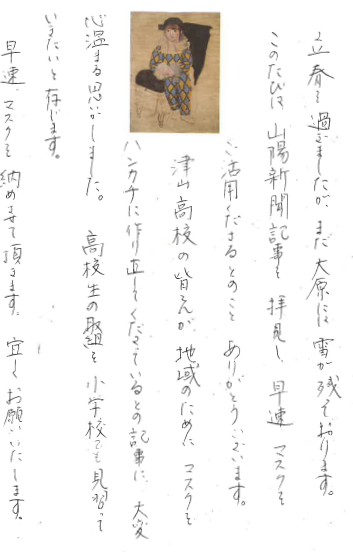 立春を過ぎましたが、まだ大原には雪が残っております。
このたびは、山陽新聞記事を拝見し、早速マスクを
ご活用くださるとのこと ありがとうございます。
津山高校の皆さんが、地域のために マスクを
ハンカチに作り直してくださっているとの記事に、大変
心温まる思いがしました。 高校生の取組を 小学校でも見習って
いきたいと存じます。
早速、マスクを納めさせて頂きます。 宜しくお願いいたします。